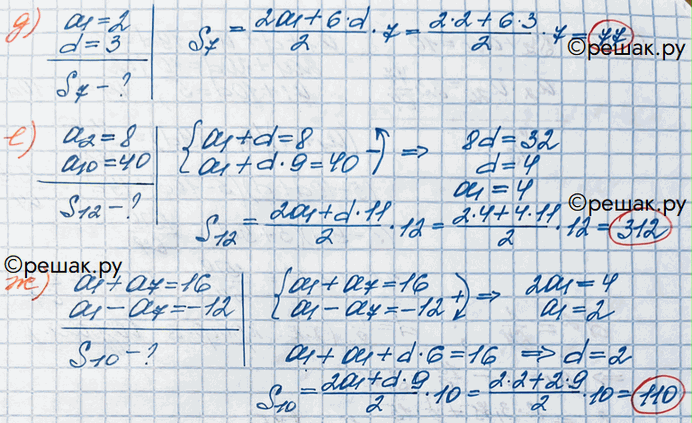 д) a₁ = 2
d = 3
S₇ - ?
S₇ = (2a₁ + 6·d)/2 · 7 = (2·2 + 6·3)/2 · 7 = 77
©решак.ру
е) a₂ = 8
a₁₀ = 40
S₁₂ - ?
{ a₁ + d = 8
a₁ + d·9 = 40 -) ⇒ 8d = 32
d = 4
a₁ = 4
©решак.ру
S₁₂ = (2a₁ + d·11)/2 · 12 = (2·4 + 4·11)/2 · 12 = 312
©решак.ру
ж) a₁ + a₇ = 16
a₁ - a₇ = -12
S₁₀ - ?
{ a₁ + a₇ = 16
a₁ - a₇ = -12 +) ⇒ 2a₁ = 4
a₁ = 2
a₁ + a₁ + d·6 = 16 ⇒ d = 2
S₁₀ = (2a₁ + d·9)/2 · 10 = (2·2 + 2·9)/2 · 10 = 110